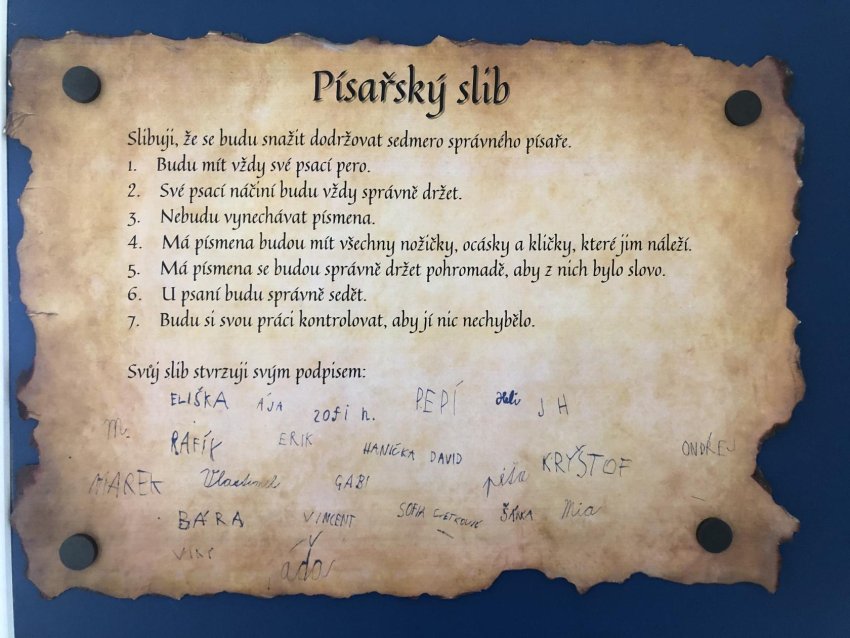 Písařský slib
Slibuji, že se budu snažit dodržovat sedmero správného písaře.
1. Budu mít vždy své psací pero.
2. Své psací náčiní budu vždy správně držet.
3. Nebudu vynechávat písmena.
4. Má písmena budou mít všechny nožičky, ocásky a kličky, které jim náleží.
5. Má písmena se budou správně držet pohromadě, aby z nich bylo slovo.
6. U psaní budu správně sedět.
7. Budu si svou práci kontrolovat, aby jí nic nechybělo.
Svůj slib stvrzuji svým podpisem:
ELIŠKA ÁJA zofi n. PEPÍ J H
M. RAFÍK ERIK HANIČKA DAVID KRYŠTOF ONDŘEJ
MAREK Vlastimil GABI péťa
BÁRA VINCENT SOFIA ŠÁRKA Mia